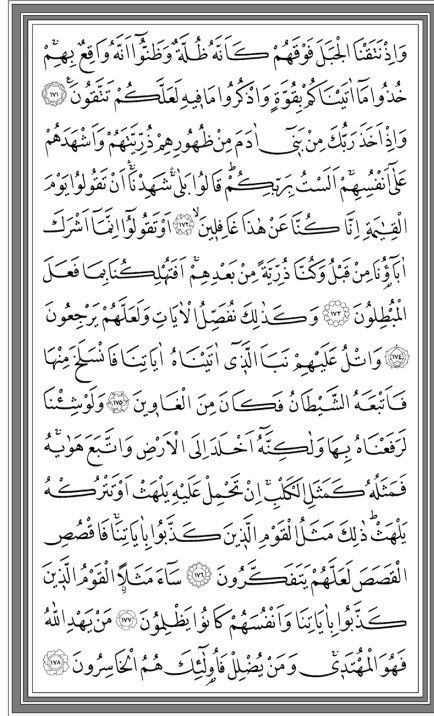 وَاِذْ نَتَقْنَا الْجَبَلَ فَوْقَهُمْ كَاَنَّهُ ظُلَّةٌ وَظَنُّٓوا اَنَّهُ وَاقِعٌ بِهِمْۚ
خُذُوا مَٓا اٰتَيْنَاكُمْ بِقُوَّةٍ وَاذْكُرُوا مَا فٖيهِ لَعَلَّكُمْ تَتَّقُونَࣖ ﴿١٧١﴾
وَاِذْ اَخَذَ رَبُّكَ مِنْ بَنٖٓي اٰدَمَ مِنْ ظُهُورِهِمْ ذُرِّيَّتَهُمْ وَاَشْهَدَهُمْ
عَلٰٓى اَنْفُسِهِمْۚ اَلَسْتُ بِرَبِّكُمْؕ قَالُوا بَلٰىۚ شَهِدْنَاۚ اَنْ تَقُولُوا يَوْمَ
الْقِيٰمَةِ اِنَّا كُنَّا عَنْ هٰذَا غَافِلٖينَۙ ﴿١٧٢﴾ اَوْ تَقُولُٓوا اِنَّمَٓا اَشْرَكَ
اٰبَٓاؤُنَا مِنْ قَبْلُ وَكُنَّا ذُرِّيَّةً مِنْ بَعْدِهِمْۚ اَفَتُهْلِكُنَا بِمَا فَعَلَ
الْمُبْطِلُونَ ﴿١٧٣﴾ وَكَذٰلِكَ نُفَصِّلُ الْاٰيَاتِ وَلَعَلَّهُمْ يَرْجِعُونَ
﴿١٧٤﴾ وَاتْلُ عَلَيْهِمْ نَبَاَ الَّذٖٓي اٰتَيْنَاهُ اٰيَاتِنَا فَانْسَلَخَ مِنْهَا
فَاَتْبَعَهُ الشَّيْطَانُ فَكَانَ مِنَ الْغَاوٖينَ ﴿١٧٥﴾ وَلَوْ شِئْنَا
لَرَفَعْنَاهُ بِهَا وَلٰكِنَّهُٓ اَخْلَدَ اِلَى الْاَرْضِ وَاتَّبَعَ هَوٰيهُۚ
فَمَثَلُهُ كَمَثَلِ الْكَلْبِۚ اِنْ تَحْمِلْ عَلَيْهِ يَلْهَثْ اَوْ تَتْرُكْهُ
يَلْهَثْؕ ذٰلِكَ مَثَلُ الْقَوْمِ الَّذٖينَ كَذَّبُوا بِاٰيَاتِنَاۚ فَاقْصُصِ
الْقَصَصَ لَعَلَّهُمْ يَتَفَكَّرُونَ ﴿١٧٦﴾ سَٓاءَ مَثَلاًۨ الْقَوْمُ الَّذٖينَ
كَذَّبُوا بِاٰيَاتِنَا وَاَنْفُسَهُمْ كَانُوا يَظْلِمُونَ ﴿١٧٧﴾ مَنْ يَهْدِ اللّٰهُ
فَهُوَ الْمُهْتَدٖيۚ وَمَنْ يُضْلِلْ فَاُولٰٓئِكَ هُمُ الْخَاسِرُونَ ﴿١٧٨﴾